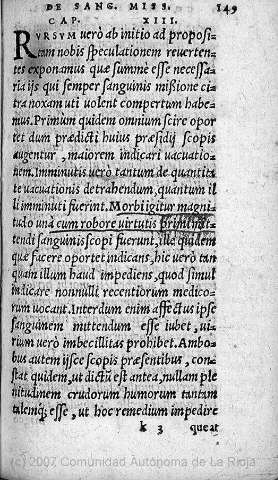 DE SANG. MISS. 149
CAP. XIII.
RVRSVM uerò ab initio ad proposi
tam nobis speculationem reuerten-
tes exponamus quæ summè esse necessa-
ria ijs qui semper sanguinis mißione ci-
tra noxam uti uolent compertum habe-
mus. Primùm quidem omnium scire opor
tet dum prædicti huius præsidij scopis
augentur, maiorem indicari uacuatio-
nem. Imminutis uerò tantum de quantita
te uacuationis detrahendum, quantum il
li imminuti fuerint. Morbi igitur magni-
tudo unà cum robore uirtutis primi mit-
tendi sanguinis scopi fuerunt, ille quidem
quæ facere oportet indicans, hic uerò tan
quam illum haud impediens, quod simul
indicare nonnulli recentiorum medico-
rum uocant. Interdum enim affectus ipse
sanguinem mittendum esse iubet, ui-
rium uerò imbecillitas prohibet. Ambo-
bus autem ijsce scopis præsentibus, con-
stat quidem, ut dictũ est antea, nullam ple
nitudinem crudorum humorum tantam
talemq; esse, ut hoc remedium impedire
k 3 queat
(c) 2007 Comunidad Autónoma de La Rioja